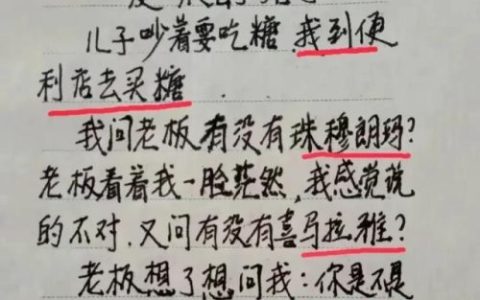 儿子吵着要吃糖,我到便
利店去买糖
我问老板有没有珠穆朗玛?
老板看着我一脸茫然,我感觉说
的不对,又问有没有喜马拉雅?
老板想了想问我:你是不是